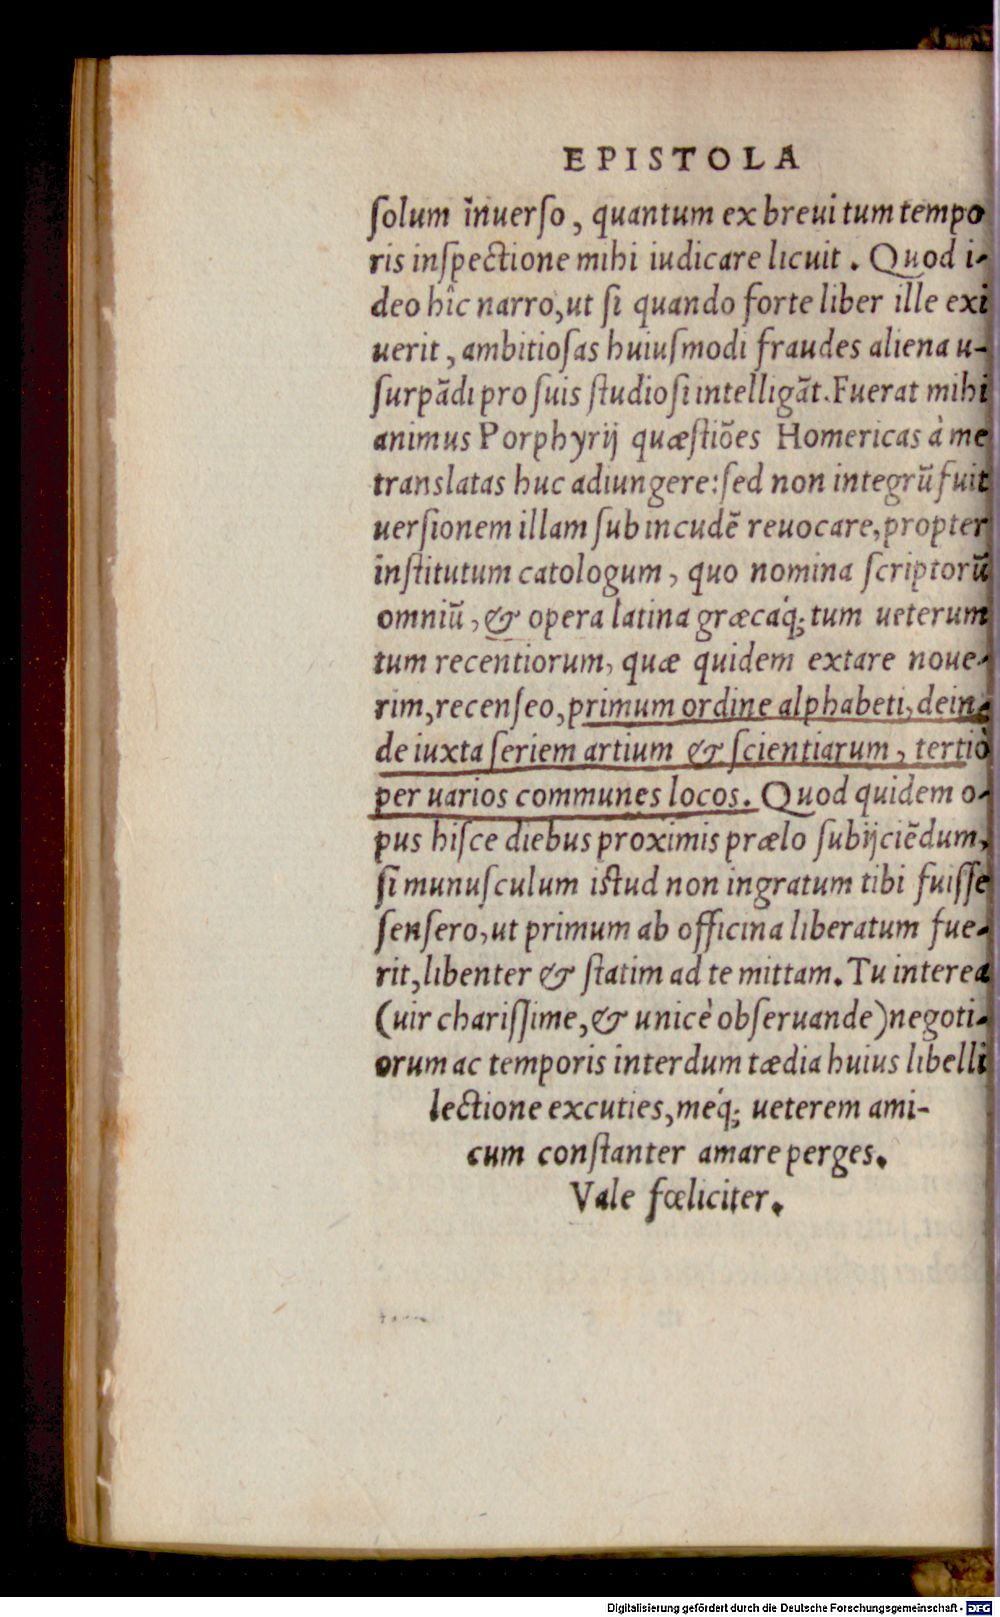 EPISTOLA
ſolum īnuerſo, quantum ex breui tum tempo
ris inſpectione mihi iudicare licuit. Quod i-
deo hîc narro, ut ſi quando forte liber ille exi
uerit, ambitioſas huiuſmodi fraudes aliena u-
ſurpādi pro ſuis ſtudioſi intelligāt. Fuerat mihi
animus Porphyrij quæſtiões Homericas à me
translatas huc adiungere: ſed non integrū fuit
uerſionem illam ſub incudē reuocare, propter
inſtitutum catologum, quo nomina ſcriptorū
omniū, & opera latina græcaq́; tum ueterum
tum recentiorum, quæ quidem extare noue-
rim, recenſeo, primum ordine alphabeti, dein-
de iuxta ſeriem artium & ſcientiarum, tertiò
per uarios communes locos. Quod quidem o-
pus hiſce diebus proximis prælo ſubijciēdum,
ſi munuſculum iſtud non ingratum tibi fuiſſe
ſenſero, ut primum ab officina liberatum fue-
rit, libenter & ſtatim ad te mittam. Tu interea
(uir chariſſime, & unicè obſeruande) negoti-
orum ac temporis interdum tædia huius libelli
lectione excuties, meq́; ueterem ami-
cum conſtanter amare perges.
Vale fœliciter.
Digitalisierung gefördert durch die Deutsche Forschungsgemeinschaft - DFG